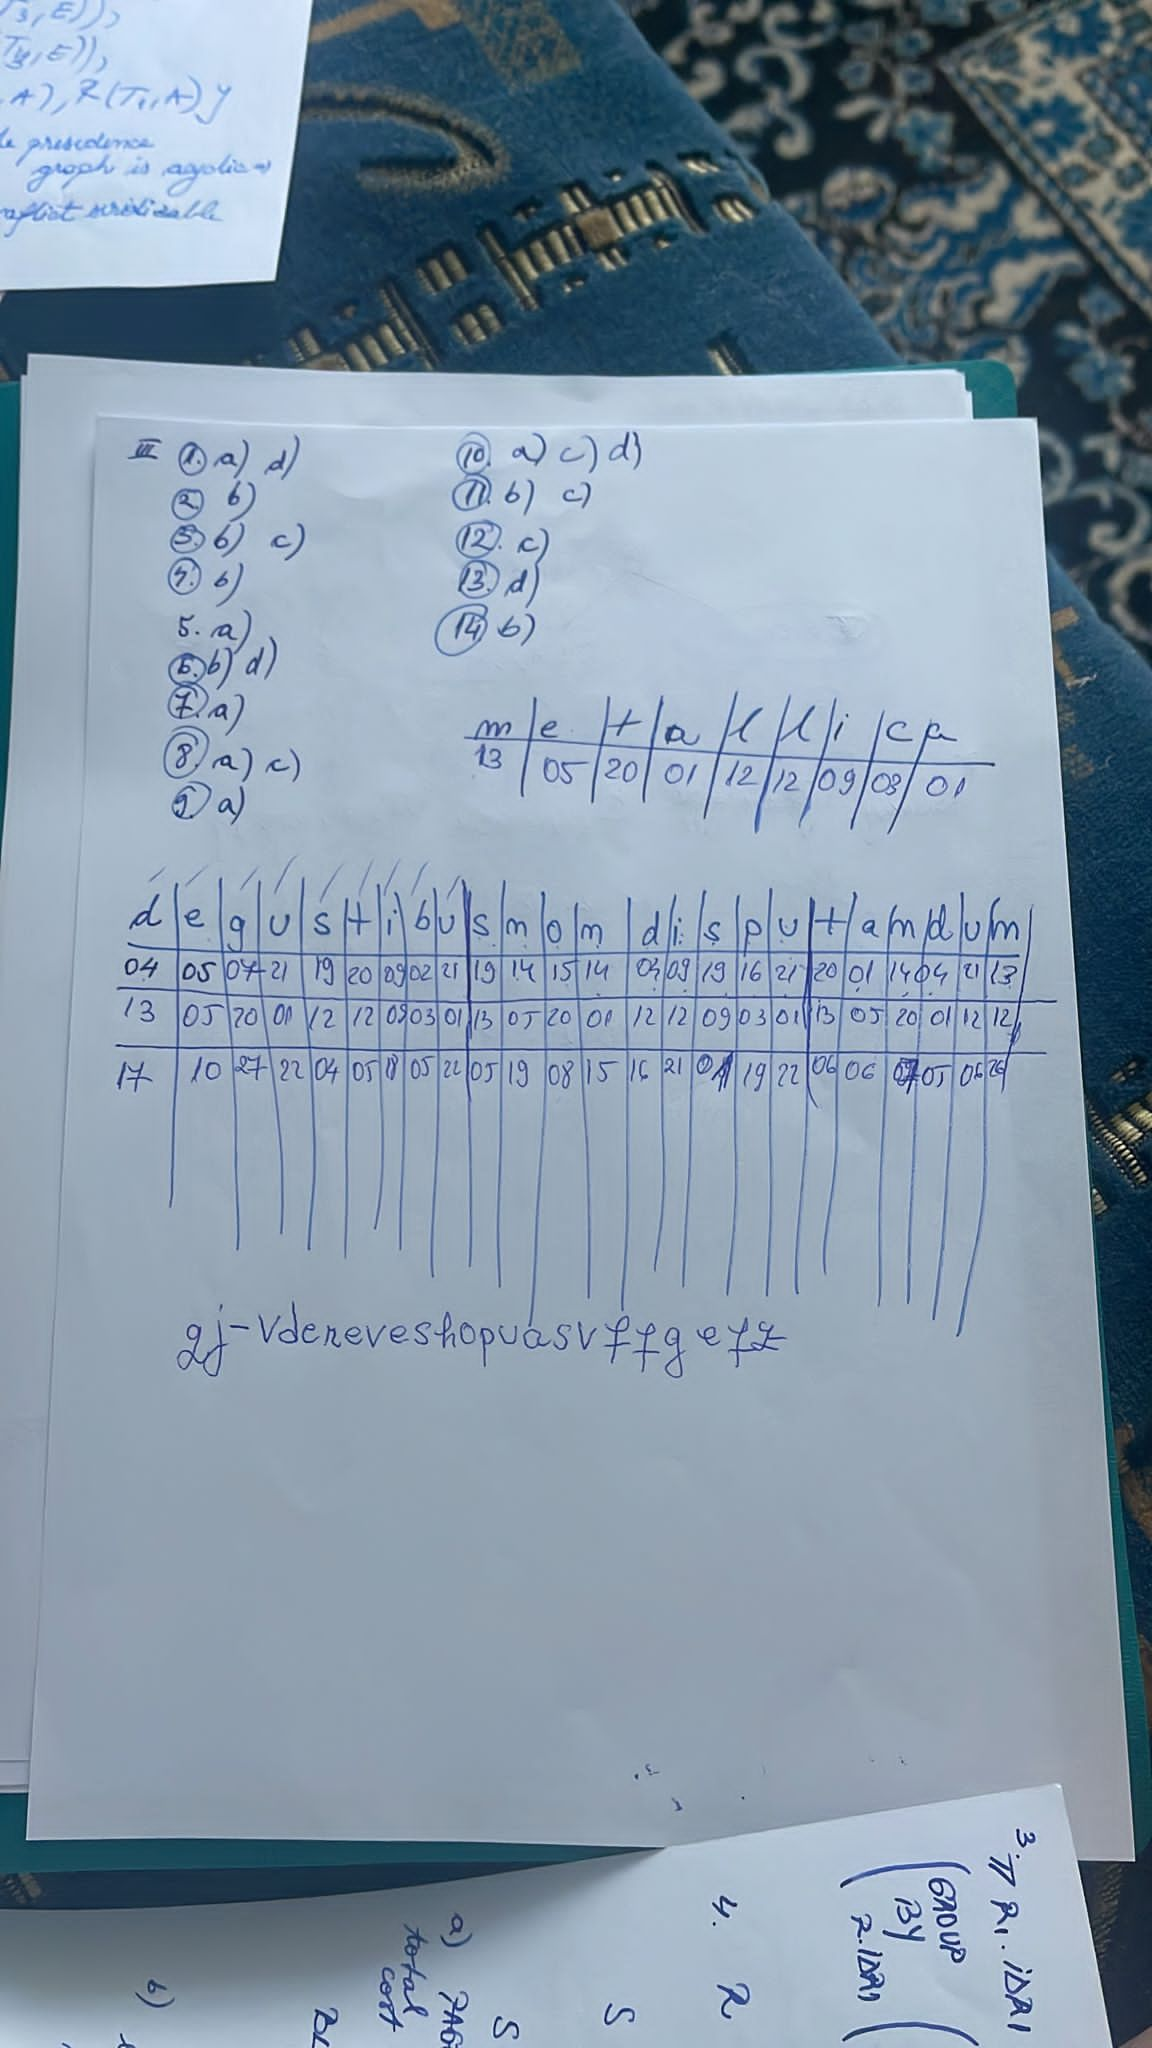 T3, E)),
T4, E)),
, A), R(T1, A) y
le presedence
graph is agolic ⇒
nflict serializable
III 1. a) d)
2. b)
3. b) c)
4. b)
5. a)
6. b) d)
7. a)
8. a) c)
9. a)
10. a) c) d)
11. b) c)
12. c)
13. d)
14. b)
m e t a l l i c a
13 05 20 01 12 12 09 03 01
d e g u s t i b u s n o n d i s p u t a n d u m
04 05 07 21 19 20 09 02 21 19 14 15 14 04 09 19 16 21 20 01 14 04 21 13
13 05 20 01 12 12 09 03 01 13 05 20 01 12 12 09 03 01 13 05 20 01 12 12
17 10 27 22 04 05 18 05 22 05 19 08 15 16 21 01 19 22 06 06 07 05 06 26
qj-vdereveshopuasvffgefz
3. π R1.IDR1
(GROUP
BY
R.IDR1
4. R
S
a)
total
cost
S
b)